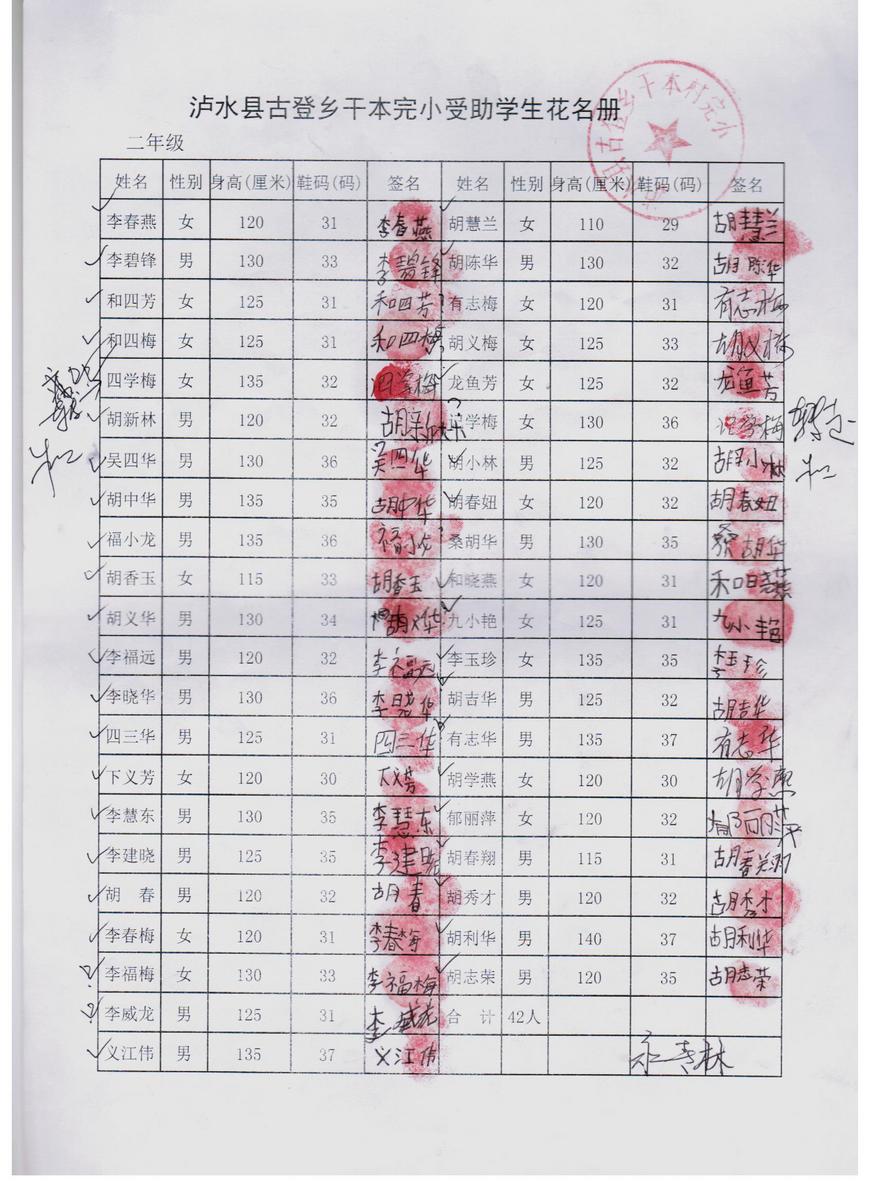 泸水县古登乡干本完小受助学生花名册
二年级
姓名 性别 身高(厘米) 鞋码(码) 签名 姓名 性别 身高(厘米) 鞋码(码) 签名
李春燕 女 120 31 李春燕 胡慧兰 女 110 29 胡慧兰
李碧锋 男 130 33 李碧锋 胡陈华 男 130 32 胡陈华
和四芳 女 125 31 和四芳 有志梅 女 120 31 有志梅
和四梅 女 125 31 和四梅 胡义梅 女 125 33 胡义梅
四学梅 女 135 32 四学梅 龙鱼芳 女 125 32 龙鱼芳
胡新林 男 120 32 胡新林 学梅 女 130 36 学梅
吴四华 男 130 36 吴四华 胡小林 男 125 32 胡小林
胡中华 男 135 35 胡中华 胡春妞 女 120 32 胡春妞
福小龙 男 135 36 福小龙 桑胡华 男 130 35 桑胡华
胡香玉 女 115 33 胡香玉 和晓燕 女 120 31 和晓燕
胡义华 男 130 34 胡义华 九小艳 女 125 31 九小艳
李福远 男 120 32 李福远 李玉珍 女 135 35 李玉珍
李晓华 男 130 36 李晓华 胡吉华 男 125 32 胡吉华
四三华 男 125 31 四三华 有志华 男 135 37 有志华
下义芳 女 120 30 下义芳 胡学燕 女 120 30 胡学燕
李慧东 男 130 35 李慧东 郁丽萍 女 120 32 郁丽萍
李建晓 男 125 35 李建晓 胡春翔 男 115 31 胡春翔
胡 春 男 120 32 胡春 胡秀才 男 120 32 胡秀才
李春梅 女 120 31 李春梅 胡利华 男 140 37 胡利华
李福梅 女 130 33 李福梅 胡志荣 男 120 35 胡志荣
李威龙 男 125 31 李威龙 合 计 42人
义江伟 男 135 37 义江伟